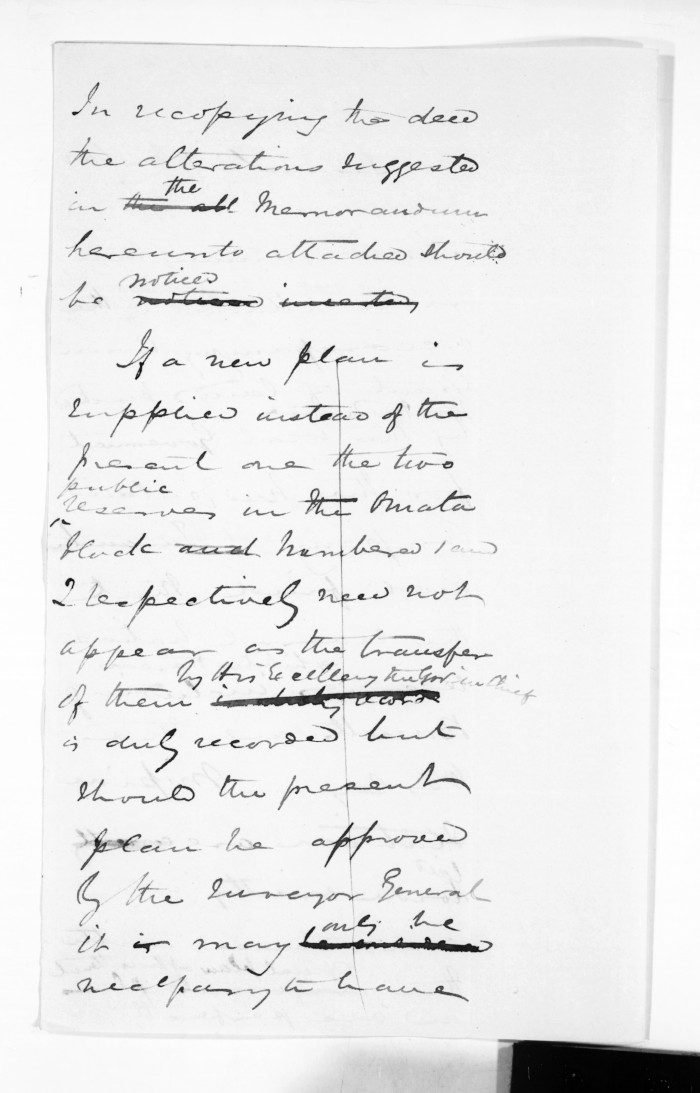 In recopying the deed
the alterations suggested
the
in the all Memorandum
hereunto attached should
noticed
be noticed inserted
If a new plan is
supplied instead of the
present one the two
public
reserves in the Omata
block and Numbered 1 and
2 respectively need not
appear as the transfer
by His Excellency the Gov. in Chief
of them is duly record
is duly recorded but
should the present
plan be approved
by the Surveyor General
only be
it is may
necessary to have